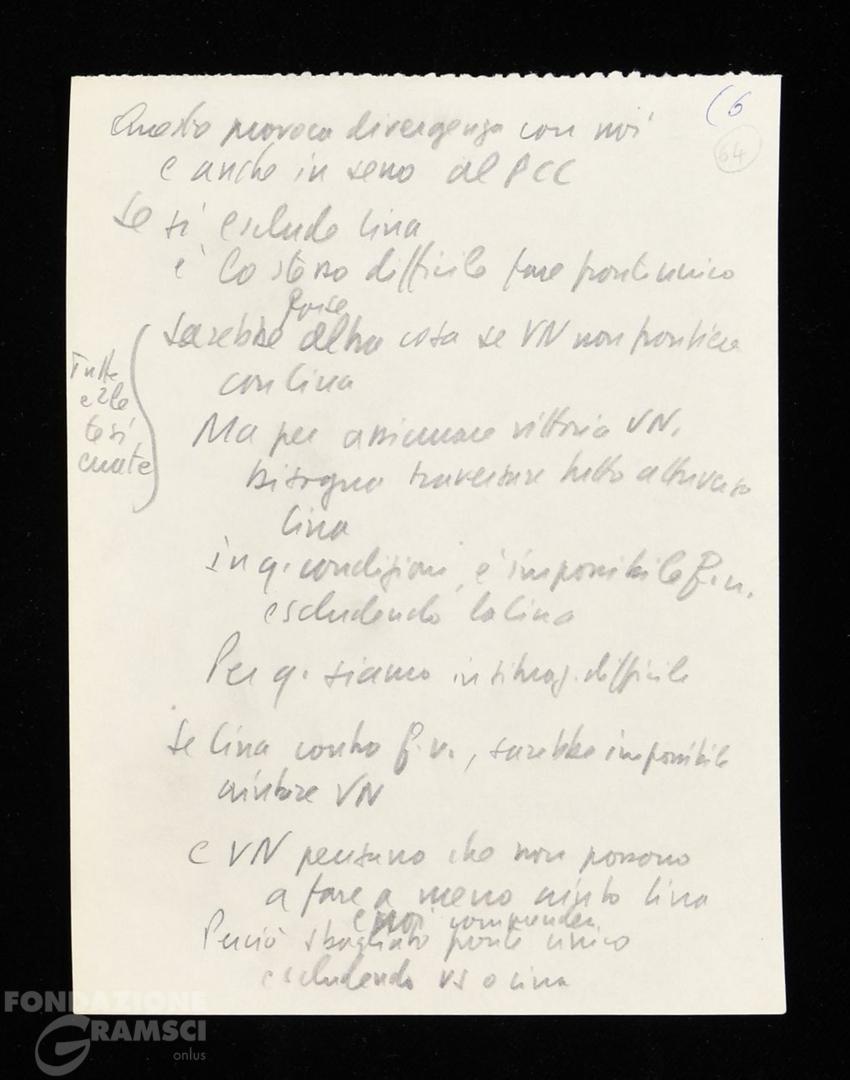 (6
64
Questo provoca divergenza con noi
e anche in seno al PCC
Se si esclude Cina
è lo stesso difficile fare fronte unico
forse
Sarebbe altra cosa se VN non frontiera
con Cina
Tutte
tesi
Ma per assicurare vittoria VN,
bisogna traversare tutto attraverso
Cina
In q. condizioni, è impossibile f.u.
escludendo la Cina
Per q. siamo in situaz. difficile
Se Cina contro f.u., sarebbe impossibile
aiutare VN
E VN pensano che non possono
a fare a meno aiuto Cina
e noi comprendiamo
Perciò sbagliato fronte unico
escludendo US o Cina
FONDAZIONE
GRAMSCI
onlus